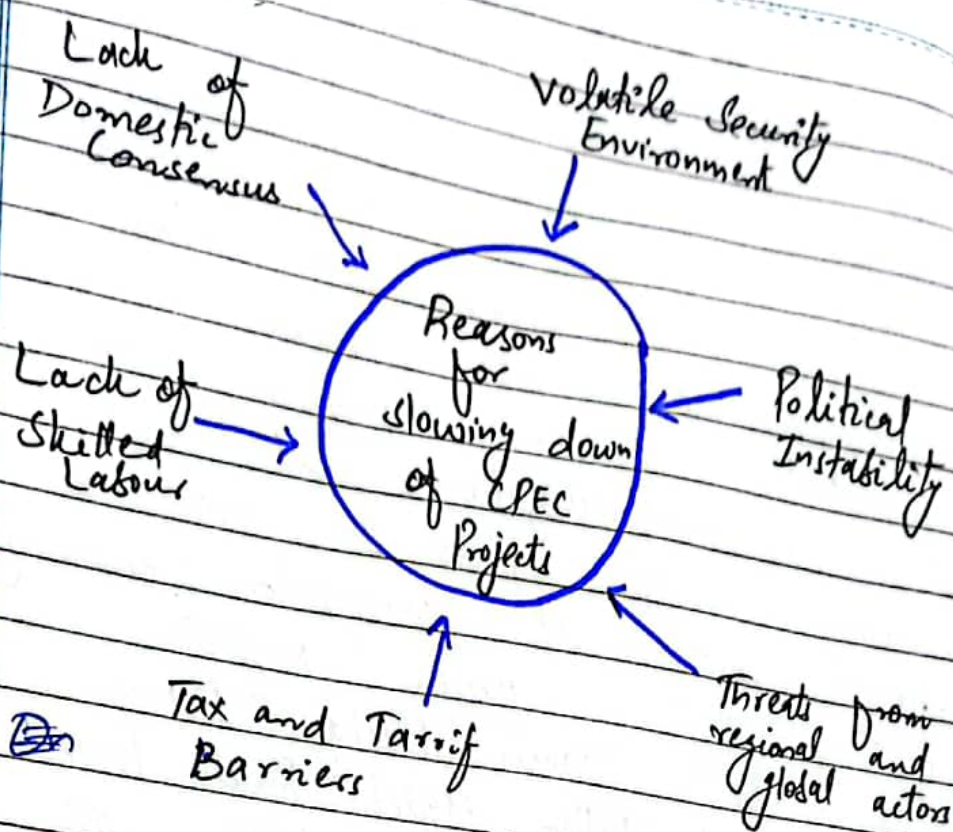 Lack of
Domestic
Consensus
Volatile Security
Environment
Reasons
for
slowing down
of CPEC
Projects
Lack of
Skilled
Labour
Political
Instability
Tax and Tarrif
Barriers
Threats from
regional and
global actors